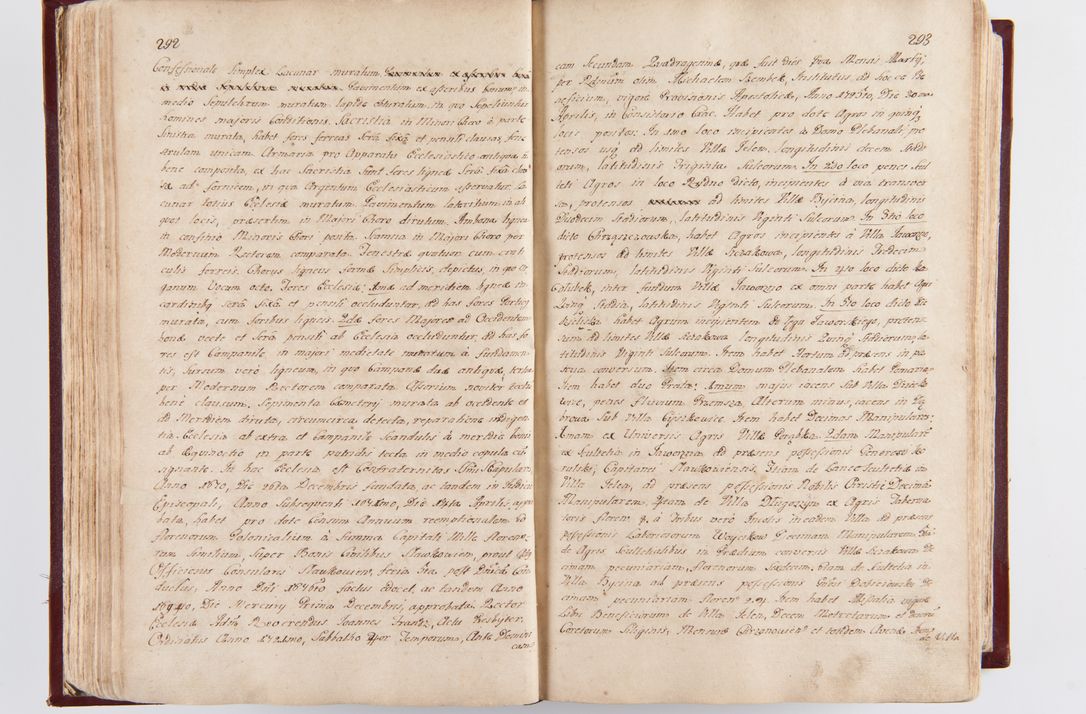 292
Confessionale Simplex Lacunar muratum
Pavimentum ex asseribus bonum, in
medio Sepulchrum muratum lapide obturatum, in quo Sepeliuntur
homines majoris Conditionis. Sacristia in Minori Choro à parte
Sinistra murata, habet fores ferreas Serâ fixâ et pensili clausas, fene
strulam unicam. Armaria pro Apparatu Ecclesiastico antiqua et
bene composita, ex hac Sacristia Sunt fores ligneæ Serâ fixâ clau
sæ ad fornicem, in qua Argentum Ecclesiasticum asservatur. La
cunar totius Ecclesiæ muratum. Pavimentum lateritium in ali
quot locis, præsertim in Majori Choro dirutum. Ambona lignea
in confinio Minoris Chori posita. Scamna in Majori Choro per
Modernum Rectorem comparata. Fenestræ quatuor cum crati
culis ferreis. Chorus ligneus formæ Simplicis, depictus, in quo or
ganum Vocum octo. Fores Ecclesiæ: Imæ ad meridiem ligneæ in
cardinibus Serâ fixâ et pensili occluduntur, ad has fores Porticus
murata, cum foribus ligneis. 2dæ fores Majores ad Occidentem
bonæ vecte et Serâ pensili ab Ecclesia occluduntur, ad has fo
res est Campanile in majori medietate muratum à fundamen
tis, sursum verò ligneum, in quo Campanæ duæ antiquæ, tertia
per Modernum Rectorem comparata. Ossorium noviter tectum
bene clausum. Sepimenta Cæmeterij murata ab occidente et
ad Meridiem diruta, circumcirca detecta, reparatione indigen
tia. Ecclesia ab extra et Campanile Scandulis à meridie bonis
ab Equinoctio in parte putridis tecta in medio copula cis
signante. In hac Ecclesia est Confraternitas SSmi Scapularis
Anno 1670, Die 26ta Decembris fundata, ac tandem in
Episcopali, Anno Subsequenti 1671mo, Die Aprilis, appro
bata, habet pro dote Censum Annuum reemptionalem 70
florenorum Polonicalium à Summa Capitali Mille floreno
rum Similium, Super Bonis Civilibus Slawkoviens, prout
Officiosus Consularis Slawkoviens, feria 3tia post Dnicam Con
ductus, Anno Dni 1676to factus edocet, ac tandem Anno
Die Mercurij Prima Decembris, approbata. Rector
Ecclesiæ Adm Rvdrendus Joannes Frantz, Actu Presbyter.
Ordinatus Anno 1721mo, Sabbatho 4or Temporum, Ante Domini
cam

293
cam Secundam Quadragesimæ, quæ fuit dies Mensis Martij,
per Rdssimum olim Michaelem Szembek, Institutus ad hoc ce Be
neficium, vigore Provisionis Apostolicæ, Anno Die 20ma
Aprilis, in Consistorio Crac. Habet pro dote Agros in quinq
locis positos: In 1mo loco incipientes à Domo Plebanali, pro
tensos usq ad limites Villæ Jelen, longitudinis decem Stadi
orum, latitudinis Triginta Sulcorum. In 2do loco penes Scul
teti Agros in loco dicto, incipientes à via transver
sa, protensos ad limites Villæ Byczina, longitudinis
Duodecim Stadiorum, latitudinis Viginti Sulcorum. In 3tio loco
dicto Chrząszczowska, habet Agros incipientes à Villa Jaworzno,
protensos ad limites Villæ Szczakowa, longitudinis Tredecim
Stadiorum, latitudinis Viginti Sulcorum. In 4to loco dicto ka
Golubek, inter fundum Villæ Jaworzno ex omni parte habet Agri
Quinq Stadia, latitudinis Viginti Sulcorum. In 5to loco dicto
habet Agrum incipientem à Jaworskiego, proten
sum ad limites Villæ Szczakowa longitudinis Quinq Stadiorum, la
titudinis Viginti Sulcorum. Item habet Hortum ad præsens in pa
scua conversum. Item circa Domum Plebanalem habet Pomaria.
Item habet duo Prata: Imum majus iacens Sub Villa
wice, penes fluvium Przemsza, Alterum minus, iacens in
Sub Villa Ciężkowice. Item habet Decimas Manipulares:
Imam ex Universis Agris Villæ Długoszyn. 2dam Manipularem
ex Scultetia in Jaworzno ad præsens possessionis Generosi
Capitanei Slawkoviensis. 3tiam de Laneo Scultetiæ in
Villa Jelen, ad præsens possessionis Nobilis Christiæ Decima
Manipularem. 4tam de Villa Długoszyn ex Agris Taberna
toris floren: 4, à Tribus verò Incolis in eadem Villa ad præsens
possessionis Laboriosorum Wojcikow Decimam Manipularem
de Agris Scultetialibus in Prædium conversis Villæ Szczakowa De
cimam pecuniariam, florenorum Sedecim. 6tam de Scultetia in
Villa Byczina ad præsens possessionis Gnosi De
cimam pecuniariam floren: Item habet Missalia
Libri Beneficiorum de Villa Jelen, Decem Mecretarum et
Coretorum Siliginis, Mensuræ Chrzanoviens et totidem Avenæ Item
de Villa